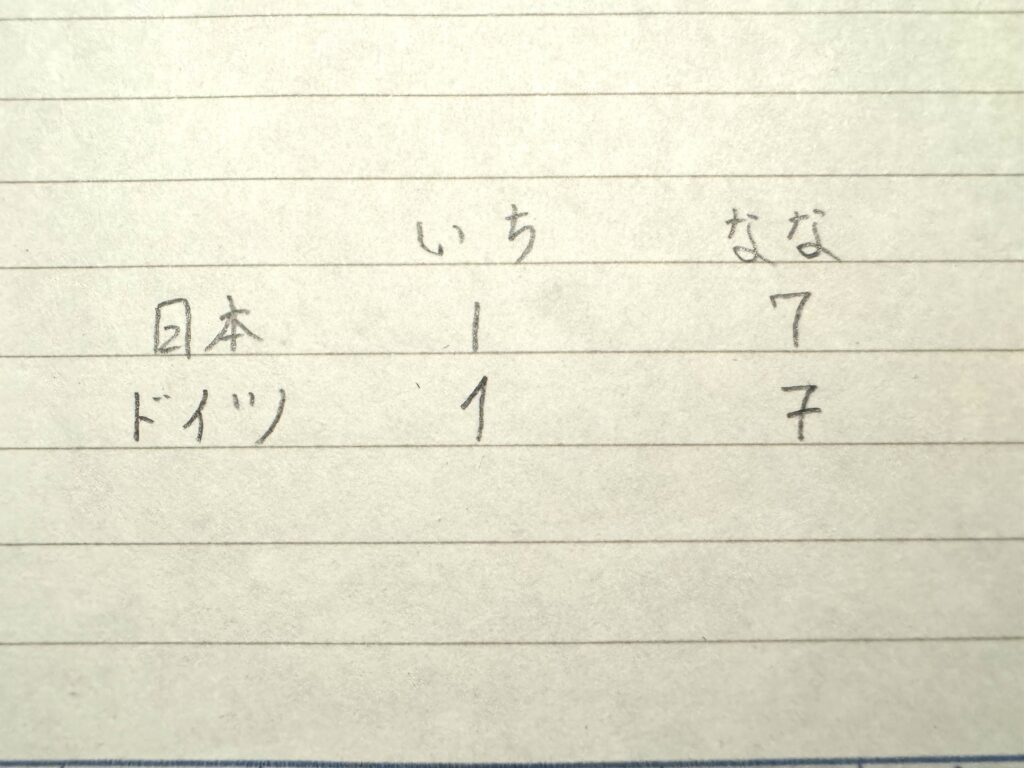 いち なな
日本 1 7
ドイツ 1 7